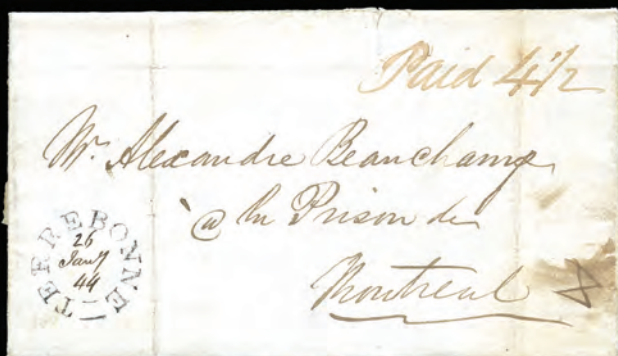 Paid 4½
Mr. Alexandre Beauchamp
@ la Prison de
Montreal
TERREBONNE
26
Jany
44